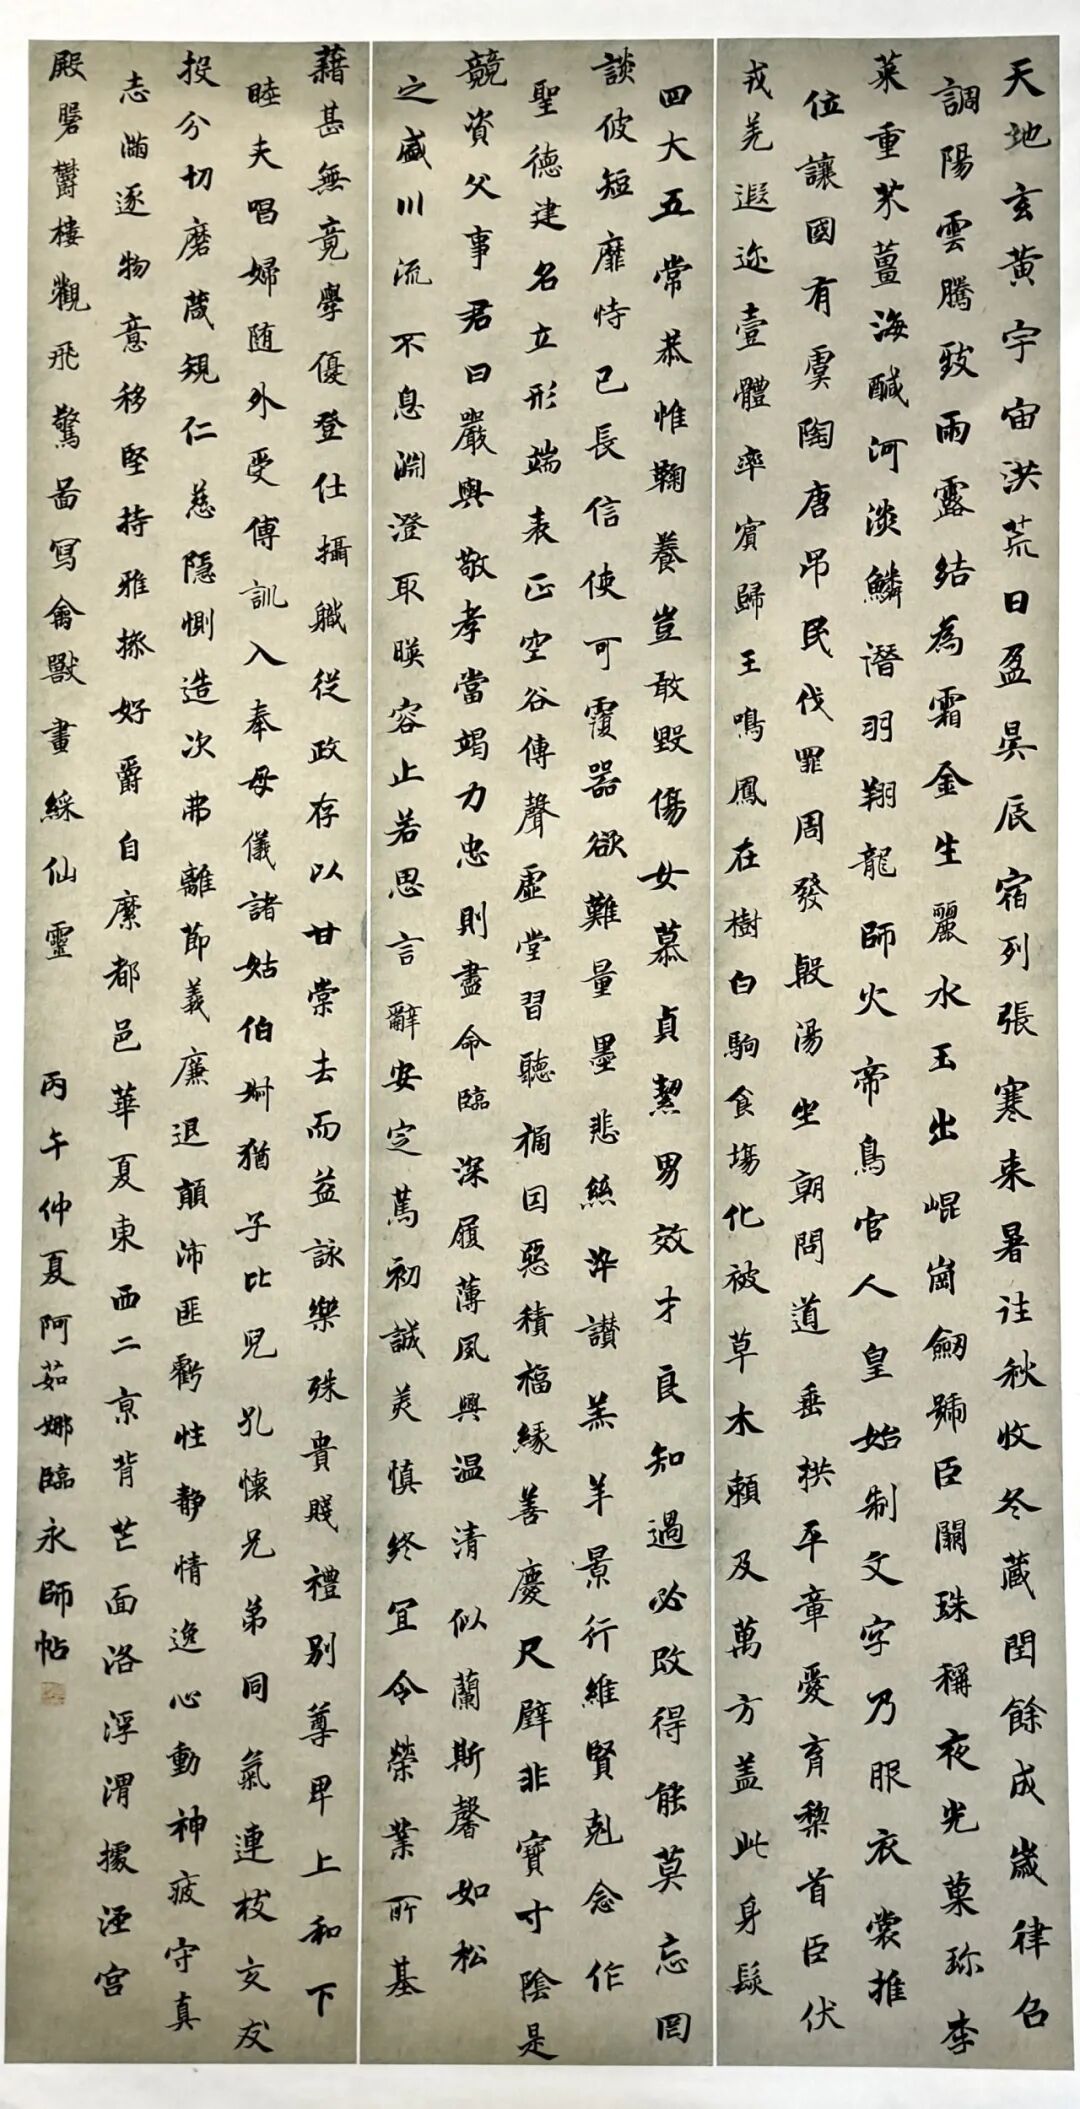 天地玄黄宇宙洪荒日盈昃辰宿列張寒来暑往秋收冬藏閏餘成歲律召
調陽雲騰致雨露結為霜金生麗水玉出崐崗劒號臣闕珠稱夜光菓珎李
菜重芥薑海醎河淡鱗潛羽翔龍師火帝鳥官人皇始制文字乃服衣裳推
位讓國有虞陶唐吊民伐罪周發殷湯坐朝問道垂拱平章愛育黎首臣伏
戎羌遐迩壹體率賓歸王鳴鳳在樹白駒食場化被草木賴及萬方盖此身髮
四大五常恭惟鞠養豈敢毀傷女慕貞潔男效才良知過必改得能莫忘罔
談彼短靡恃己長信使可覆器欲難量墨悲絲染讃羔羊景行維賢剋念作
聖德建名立形端表正空谷傳聲虛堂習聽禍因惡積福緣善慶尺璧非寶寸陰是
競資父事君曰嚴與敬孝當竭力忠則盡命臨深履薄夙興温清似蘭斯馨如松
之盛川流不息淵澄取暎容止若思言辭安定篤初誠美慎終宜令榮業所基
藉甚無竟學優登仕攝職從政存以甘棠去而益詠樂殊貴賤禮別尊卑上和下
睦夫唱婦随外受傅訓入奉母儀諸姑伯叔猶子比兒孔懷兄弟同氣連枝交友
投分切磨箴規仁慈隱惻造次弗離節義廉退顛沛匪虧性靜情逸心動神疲守真
志滿逐物意移堅持雅操好爵自縻都邑華夏東西二京背芒面洛浮渭據涇宮
殿磐欝樓觀飛驚啚寫禽獸畫綵仙靈 丙午仲夏阿茹娜臨永師帖